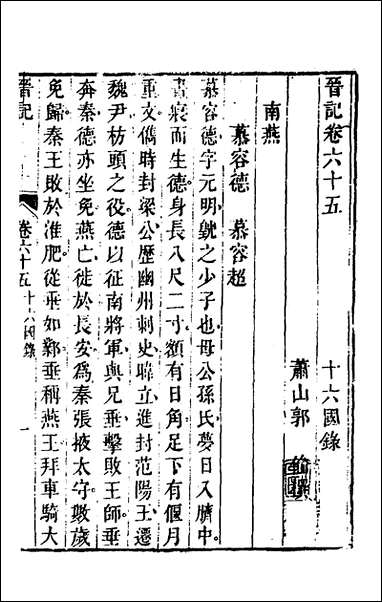 晉記卷六十五　十六國錄
蕭山郭
南燕
慕容德　慕容超
慕容德字元明皝之少子也母公孫氏夢日入臍中。
晝寢而生德身長八尺二寸額有日角足下有偃月
重文儁時封梁公歷幽州刺史暐立進封范陽王遷
魏尹枋頭之役德以征南將軍與兄垂擊敗王師垂
奔秦德亦坐免燕亡徙於長安爲秦張掖太守數歲
免歸秦王敗於淮肥從垂如鄴垂稱燕王拜車騎大
晉記　卷六十五　十六國錄　一